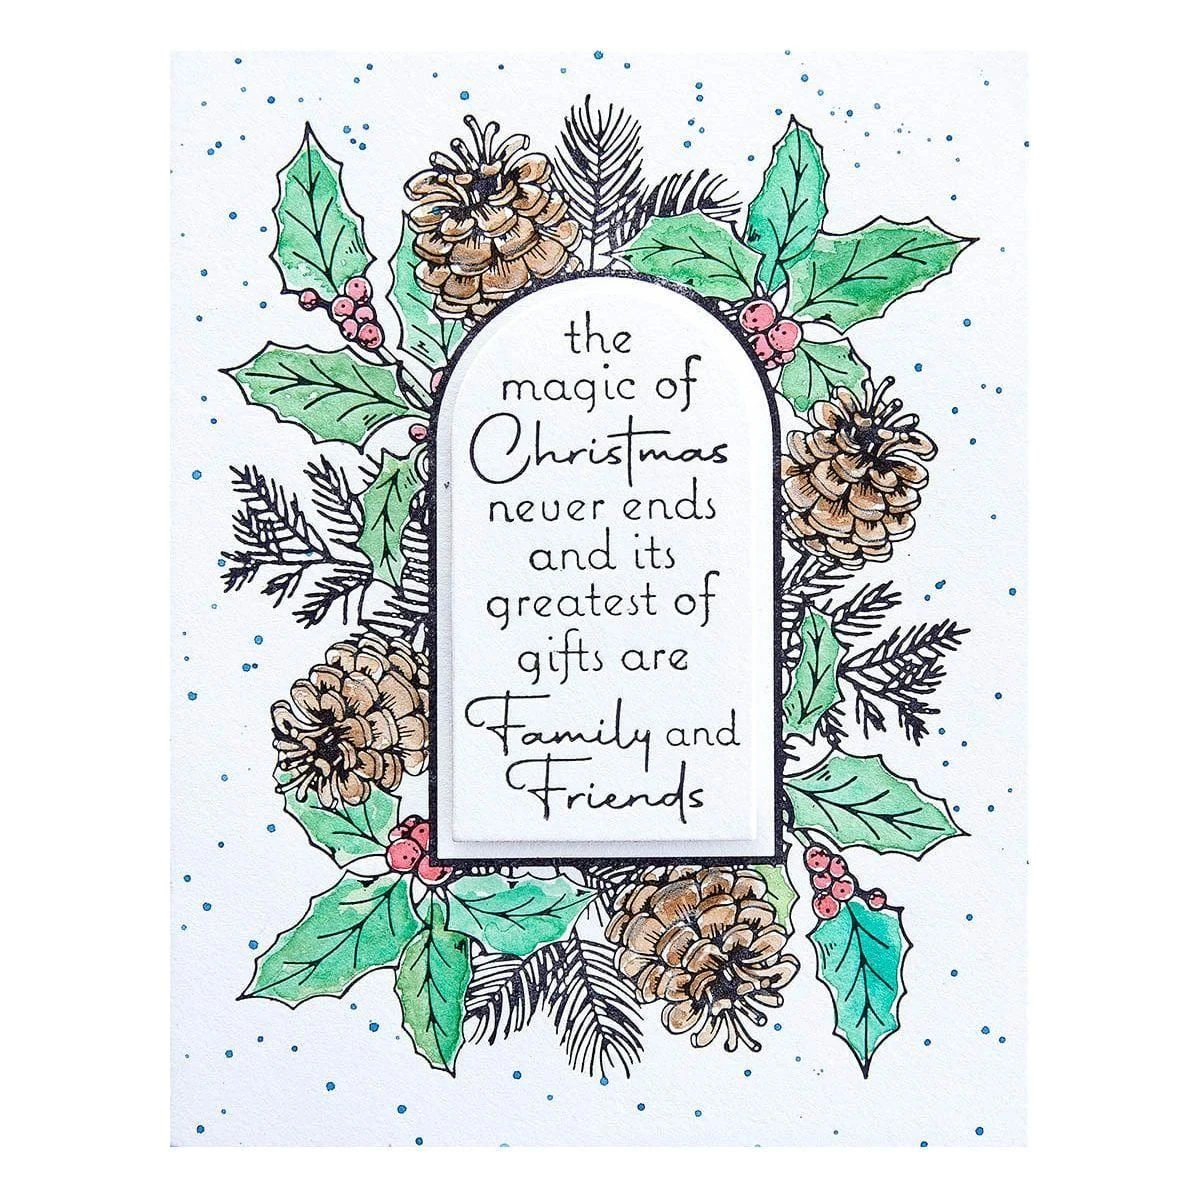 the
magic of
Christmas
never ends
and its
greatest of
gifts are
Family and
Friends